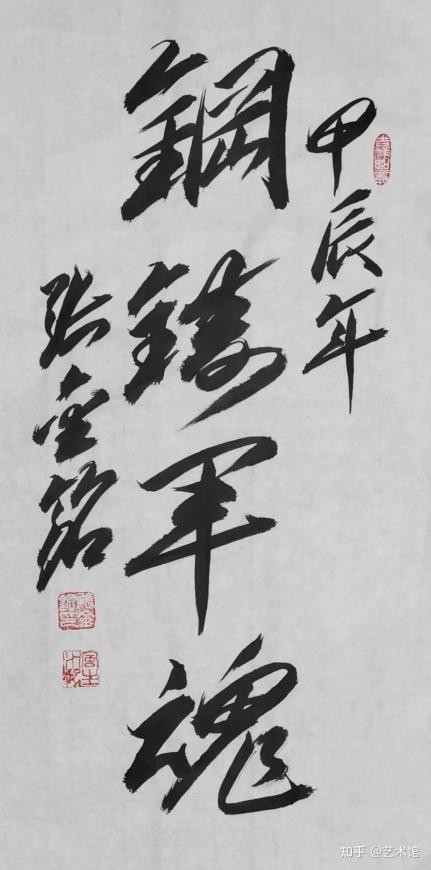 甲辰年
鋼鑄軍魂
張金銘
知乎 @艺术馆